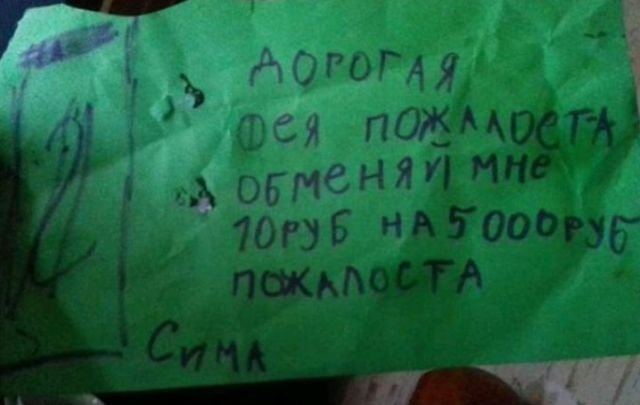 ДОРОГАЯ
ФЕЯ ПОЖАЛОСТА
ОБМЕНЯЙ МНЕ
10РУБ НА 5000РУБ
ПОЖАЛОСТА
СИМА